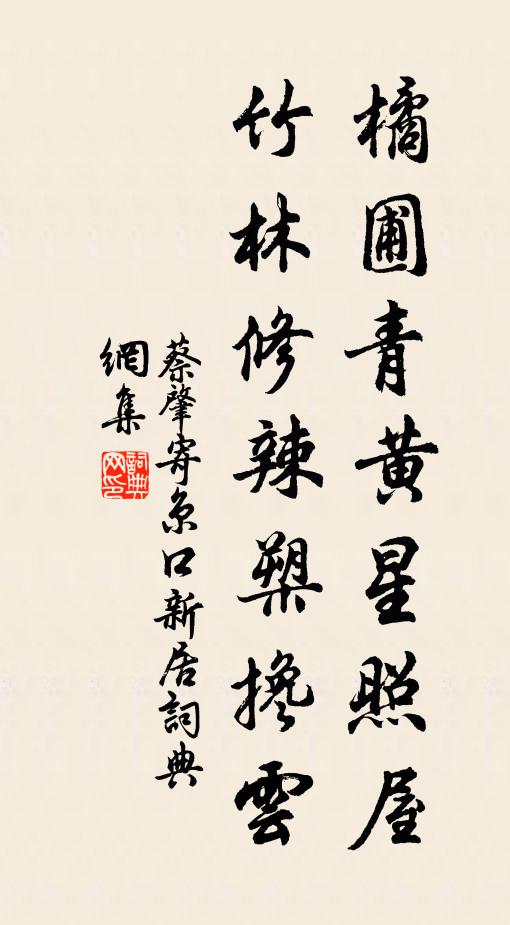 橘圃青黃星照屋
竹林修辣槊攙雲
蔡肇寄京口新居詞典
網集
詞典
网印